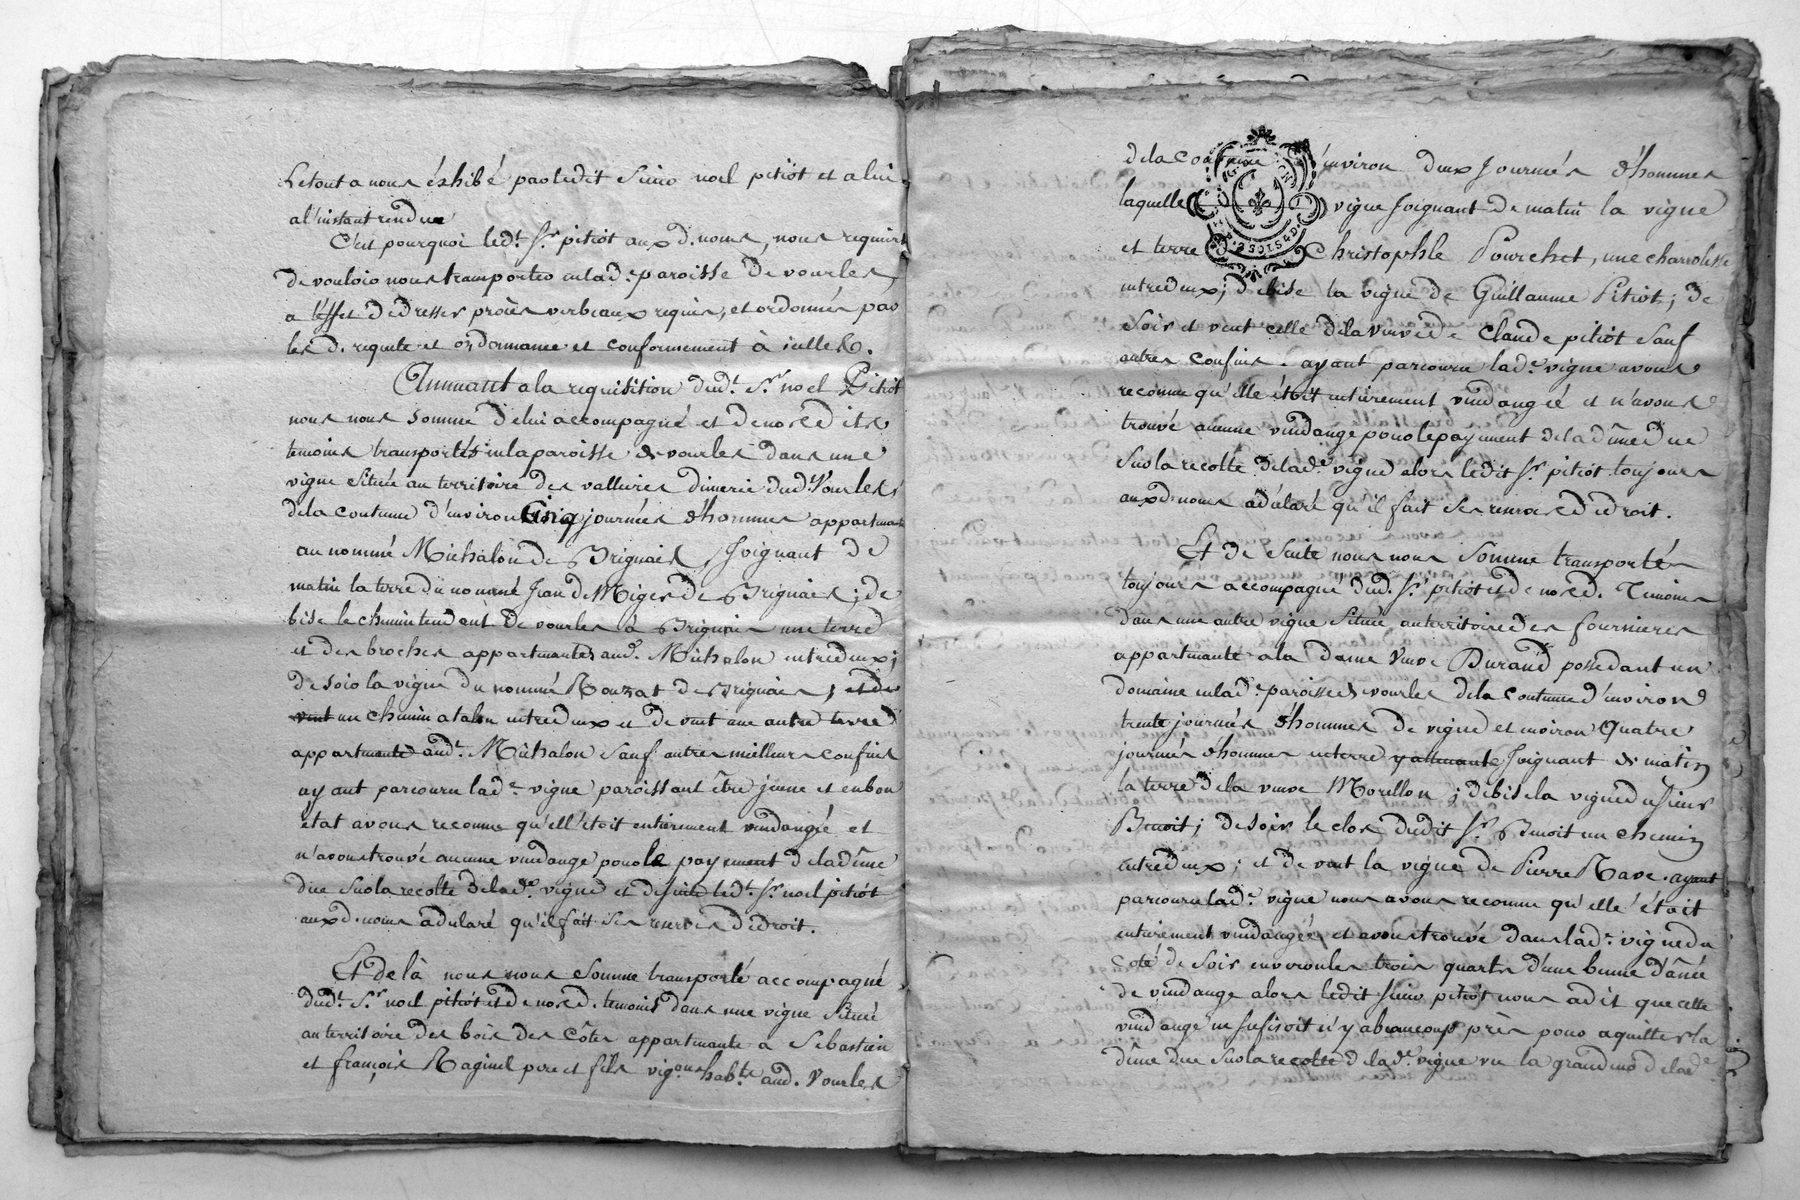 Le tout a nous éxhibé par ledit Sieur noel pitiot et a lui
a l'instant rendue
C'est pourquoi led.t S.r pitiot aux d. noms, nous requiert
de vouloir nous transporter en lad.e paroisse de vourles,
a l'effet de dresser procès verbeaux requis, et ordonnés par
les d. requete et ordonnance et conformement à icelles.
Annuant a la requisition dud.t S.r noel Pitiot
nous nous somme de lui accompagné et de nosedits
temoins transportés en la paroisse de vourles dans une
vigne située au territoire des vallieres dimerie dud. Vourles
de la coutume d'environ Cinq journées d'hommes appartenante
au nommé Michalon de Brignais, Joignant de
matin la terre du nommé Jean de Miges de Brignais ; de
bise le chemin tendant de vourles à Brignais une terre
et des broches appartenantes aud. Michalon entredeux ;
de soir la vigne du nommé Rouzat de Brignais ; et de
vent un chemin a talon entredeux et de vent une autre terre
appartenante aud.t Michalon Sauf autres meilleurs confins
ayant parcouru lad.e vigne paroissant être jeune et en bon
état avons reconnu qu'ell'étoit entièrement vendangée et
n'avons trouvé aucune vendange pour le payement de la dîme
due sur la recolte de lad.e vigne et de suite led.t S.r noel pitiot
aux d. noms a déclaré qu'il fait ses reserves de droit.
Et de là nous nous somme transporté accompagné
dud.t S.r noel pitiot et de nosd. temoins dans une vigne située
au territoire des bois des côtes appartenante à Sebastien
et françois Raginel pere et fils vig.ons hab.ts aud. Vourles
de la coutume d'environ deux Journées d'hommes
laquelle vigne Joignant de matin la vigne
et terre de Christophle Pourchet, une charrolisse
entredeux ; de bise la vigne de Guillaume Pitiot ; de
soir et vent celle de la veuve de Claude pitiot sauf
autres confins. ayant parcouru lad.e vigne avons
reconnu qu'elle étoit entièrement vendangée et n'avons
trouvé aucune vendange pour le payement de la dîme due
sur la recolte de lad.e vigne alors ledit S.r pitiot toujours
aux d. noms a déclaré qu'il fait ses reserves de droit.
Et de suite nous nous somme transportés
toujours accompagné dud. S.r pitiot et de nosd. Temoins
dans une autre vigne située au territoire des fournieres
appartenante a la dame Veuve Durand possedant un
domaine en lad.e paroisse de vourles de la coutume d'environ
trente journées d'hommes de vigne et environ quatre
journées d'hommes en terre y attenante Joignant de matin
la terre de la veuve Morillon ; de bise la vigne du sieur
Benoit ; de soir le clos dudit S.r Benoit un chemin
entredeux ; et de vent la vigne de Pierre Rave. ayant
parcouru lad.e vigne nous avons reconnu qu'elle étoit
entierement vendangée et avons trouvé dans lad.e vigne du
coté de soir environ les trois quarts d'une benne d'ânée
de vendange alors ledit sieur pitiot nous a dit que cette
vendange ne sufisoit n'y a beaucoup près pour aquitter la
dîme due sur la recolte de lad.e vigne vu la grandeur de lad.e